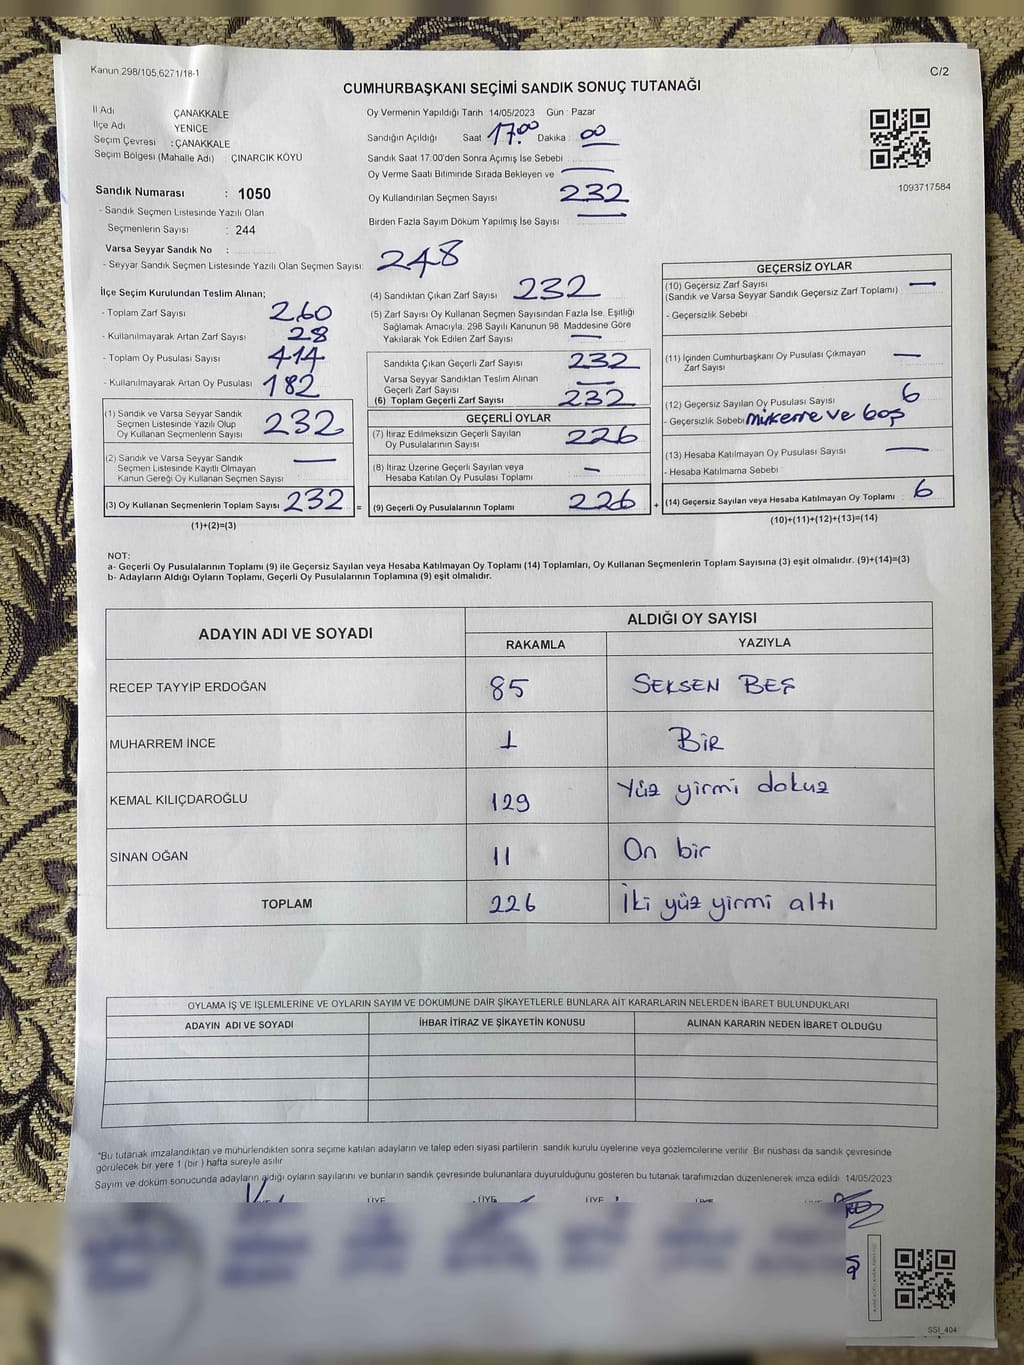 Kanun.298/105,6271/18-1
C/2
CUMHURBAŞKANI SEÇİMİ SANDIK SONUÇ TUTANAĞI
İl Adı ÇANAKKALE
İlçe Adı YENİCE
Seçim Çevresi : ÇANAKKALE
Seçim Bölgesi (Mahalle Adı) ÇINARCIK KÖYÜ
Sandık Numarası : 1050
- Sandık Seçmen Listesinde Yazılı Olan
Seçmenlerin Sayısı : 244
Varsa Seyyar Sandık No :
- Seyyar Sandık Seçmen Listesinde Yazılı Olan Seçmen Sayısı: 248
Oy Vermenin Yapıldığı Tarih 14/05/2023 Gün : Pazar
Sandığın Açıldığı Saat 17.00 Dakika : 00
Sandık Saat 17:00'den Sonra Açımış İse Sebebi
Oy Verme Saati Bitiminde Sırada Bekleyen ve
Oy Kullandırılan Seçmen Sayısı 232
Birden Fazla Sayım Döküm Yapılmış İse Sayısı
1093717584
İlçe Seçim Kurulundan Teslim Alınan;
- Toplam Zarf Sayısı 260
- Kullanılmayarak Artan Zarf Sayısı 28
- Toplam Oy Pusulası Sayısı 414
- Kullanılmayarak Artan Oy Pusulası 182
(1) Sandık ve Varsa Seyyar Sandık
Seçmen Listesinde Yazılı Olup
Oy Kullanan Seçmenlerin Sayısı 232
(2) Sandık ve Varsa Seyyar Sandık
Seçmen Listesinde Kayıtlı Olmayan
Kanun Gereği Oy Kullanan Seçmen Sayısı —
(3) Oy Kullanan Seçmenlerin Toplam Sayısı 232 =
(1)+(2)=(3)
(4) Sandıktan Çıkan Zarf Sayısı 232
(5) Zarf Sayısı Oy Kullanan Seçmen Sayısından Fazla İse, Eşitliği
Sağlamak Amacıyla, 298 Sayılı Kanunun 98. Maddesine Göre
Yakılarak Yok Edilen Zarf Sayısı —
Sandıkta Çıkan Geçerli Zarf Sayısı 232
Varsa Seyyar Sandıktan Teslim Alınan
Geçerli Zarf Sayısı —
(6) Toplam Geçerli Zarf Sayısı 232
GEÇERLİ OYLAR
(7) İtiraz Edilmeksizin Geçerli Sayılan
Oy Pusulalarının Sayısı 226
(8) İtiraz Üzerine Geçerli Sayılan veya
Hesaba Katılan Oy Pusulası Toplamı —
(9) Geçerli Oy Pusulalarının Toplamı 226 +
GEÇERSİZ OYLAR
(10) Geçersiz Zarf Sayısı —
(Sandık ve Varsa Seyyar Sandık Geçersiz Zarf Toplamı)
- Geçersizlik Sebebi
(11) İçinden Cumhurbaşkanı Oy Pusulası Çıkmayan
Zarf Sayısı —
(12) Geçersiz Sayılan Oy Pusulası Sayısı 6
- Geçersizlik Sebebi ve boş
(13) Hesaba Katılmayan Oy Pusulası Sayısı —
- Hesaba Katılmama Sebebi
(14) Geçersiz Sayılan veya Hesaba Katılmayan Oy Toplamı : 6
(10)+(11)+(12)+(13)=(14)
NOT:
a- Geçerli Oy Pusulalarının Toplamı (9) ile Geçersiz Sayılan veya Hesaba Katılmayan Oy Toplamı (14) Toplamları, Oy Kullanan Seçmenlerin Toplam Sayısına (3) eşit olmalıdır. (9)+(14)=(3)
b- Adayların Aldığı Oyların Toplamı, Geçerli Oy Pusulalarının Toplamına (9) eşit olmalıdır.
ADAYIN ADI VE SOYADI ALDIĞI OY SAYISI
RAKAMLA YAZIYLA
RECEP TAYYİP ERDOĞAN 85 SEKSEN BEŞ
MUHARREM İNCE 1 BİR
KEMAL KILIÇDAROĞLU 129 Yüz yirmi dokuz
SİNAN OĞAN 11 On bir
TOPLAM 226 İki yüz yirmi altı
OYLAMA İŞ VE İŞLEMLERİNE VE OYLARIN SAYIM VE DÖKÜMÜNE DAİR ŞİKAYETLERLE BUNLARA AİT KARARLARIN NELERDEN İBARET BULUNDUKLARI
ADAYIN ADI VE SOYADI İHBAR İTİRAZ VE ŞİKAYETİN KONUSU ALINAN KARARIN NEDEN İBARET OLDUĞU
"Bu tutanak imzalandıktan ve mühürlendikten sonra seçime katılan adayların ve talep eden siyasi partilerin sandık kurulu üyelerine veya gözlemcilerine verilir. Bir nüshası da sandık çevresinde
görülecek bir yere 1 (bir ) hafta süreyle asılır
Sayım ve döküm sonucunda adayların aldığı oyların sayılarını ve bunların sandık çevresinde bulunanlara duyurulduğunu gösteren bu tutanak tarafımızdan düzenlenerek imza edildi 14/05/2023
ÜYE ÜYE ÜYE ÜYE
SSI_404